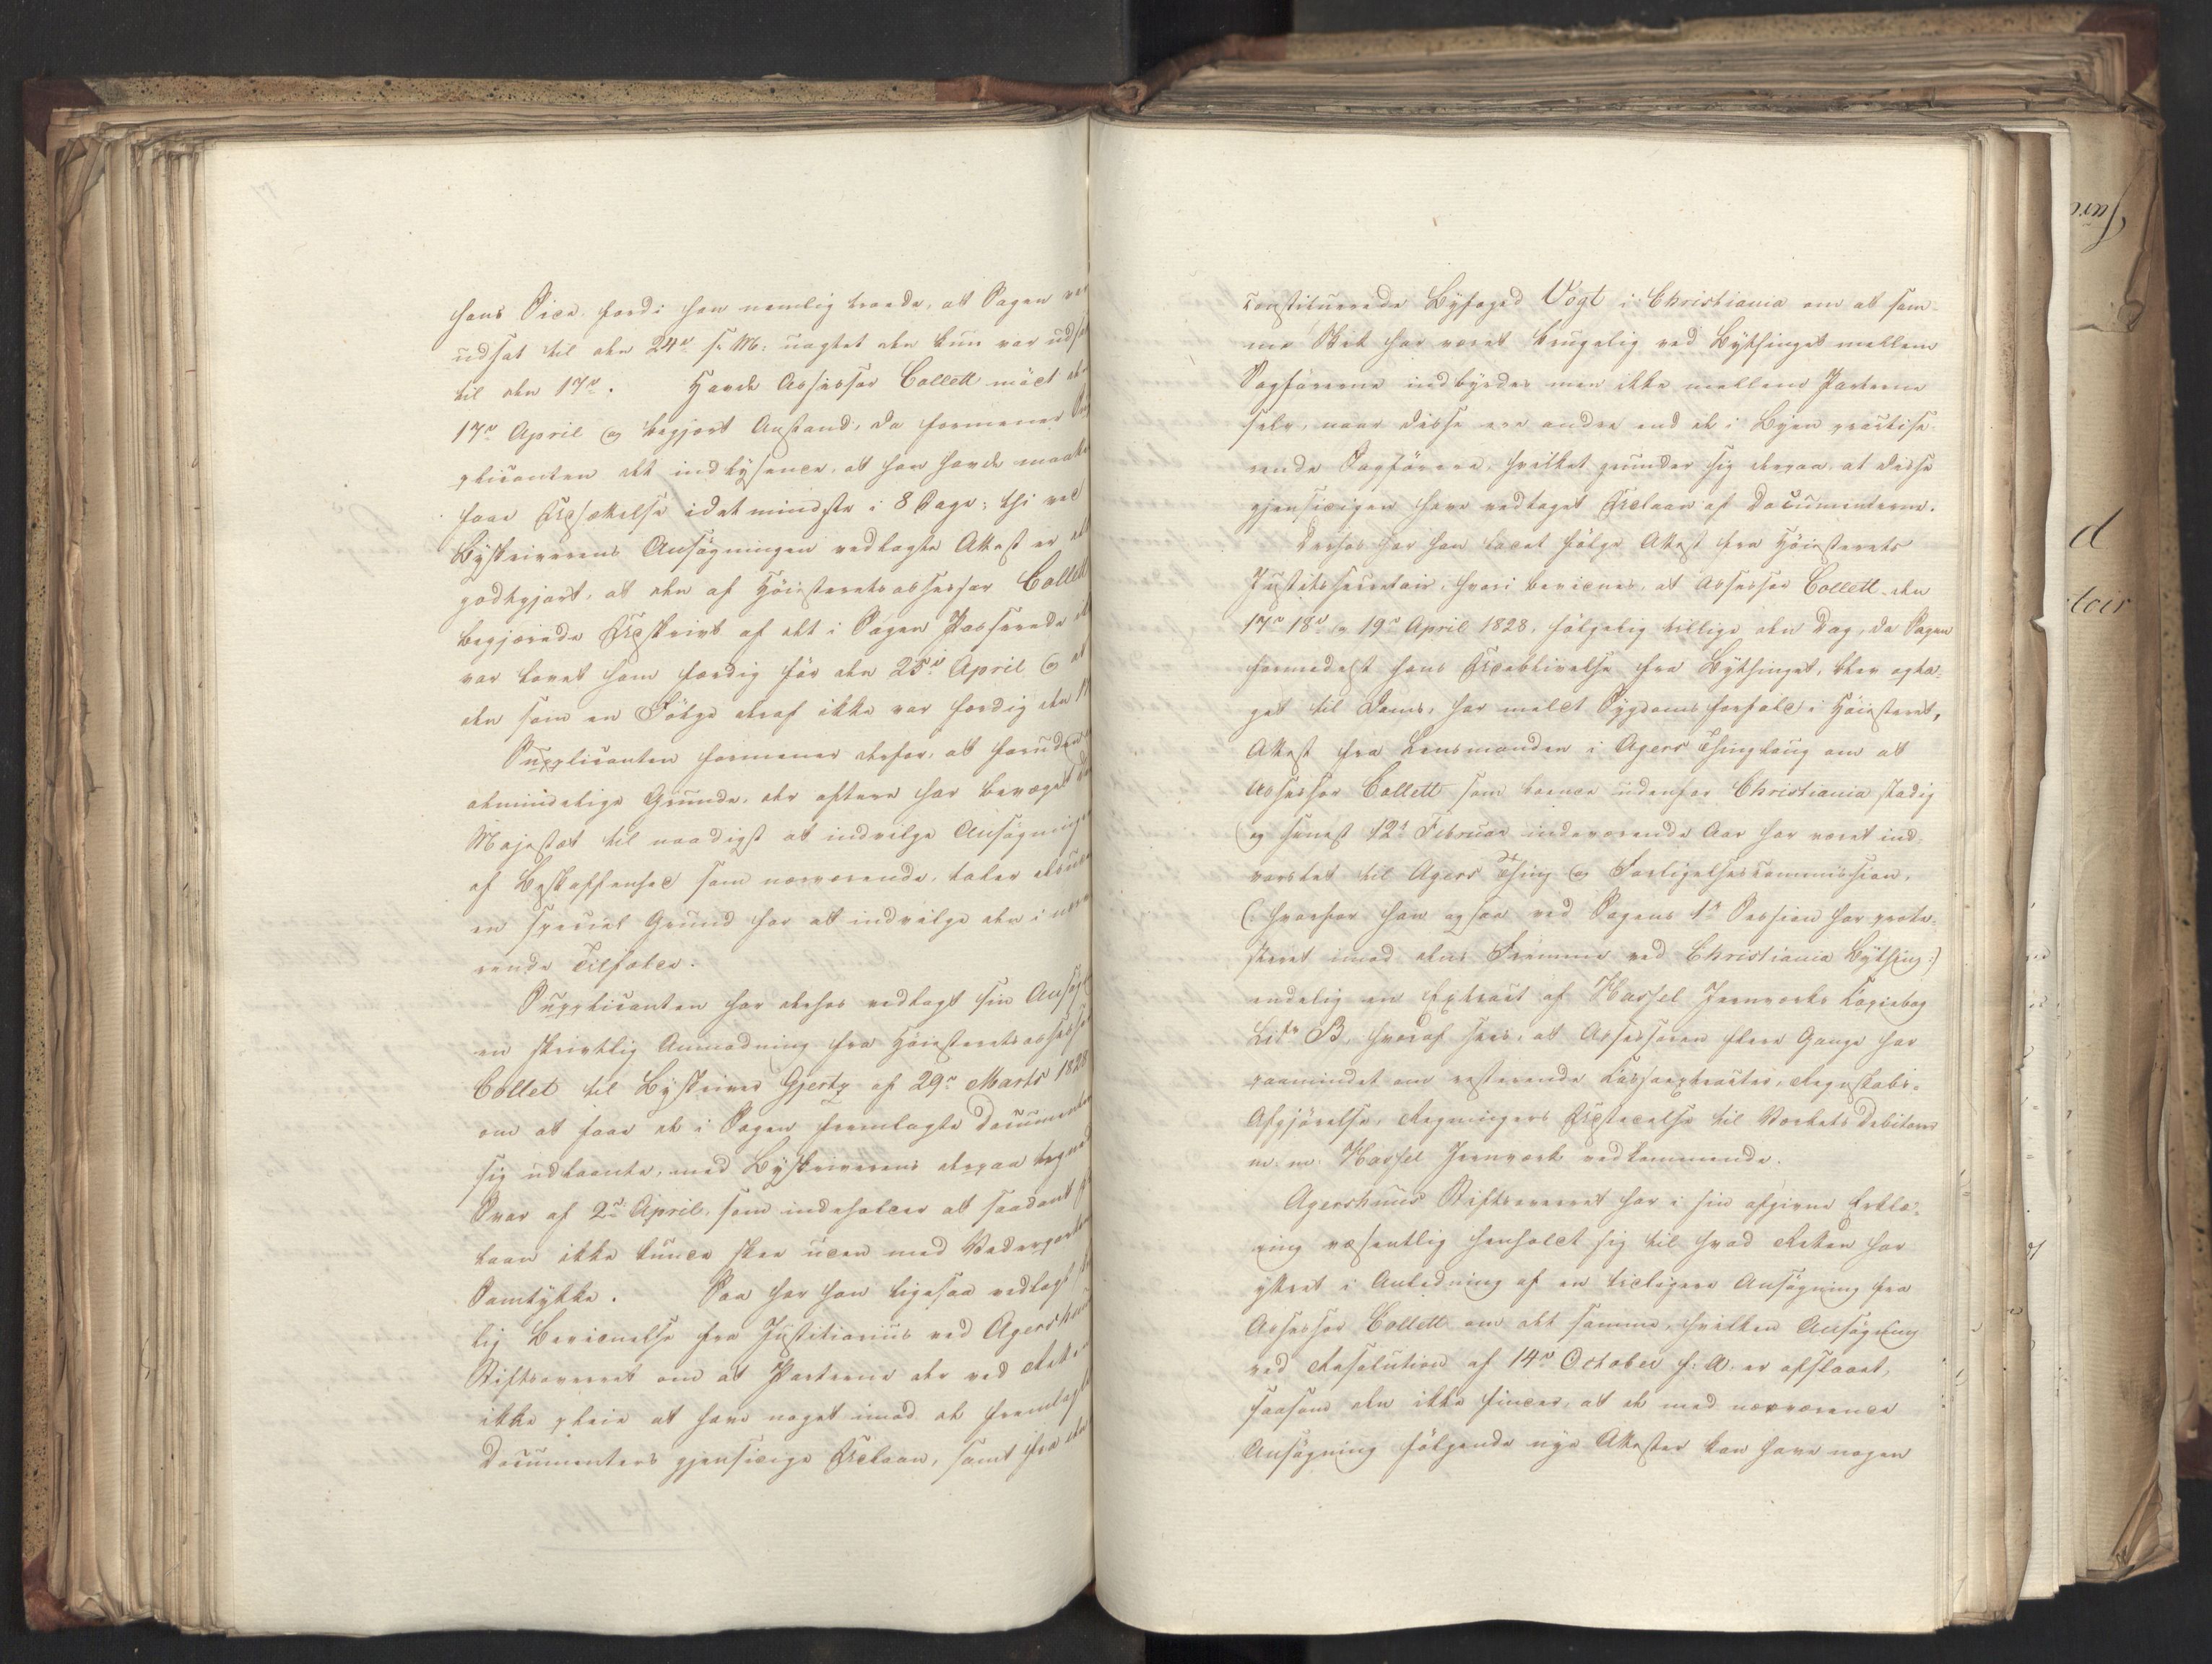 hans Side fordi han nemlig troede, at Sagen var
udsat til den 24de s: M: uagtet den kun var udsat
til den 17de. Havde Assessor Collett mödt den
17de April og begjært Anstand, da formener Sup
plicanten det indlysende, at han havde maatte
faae Udsættelse idetmindste i 8 Dage; thi ved
Byskriverens Ansögningen vedlagte Attest er det
godtgjort, at den af Höiesteretsassessor Collett
begjærede Udskrivt af det i Sagen Passerede ik
var lovet ham færdig för den 25de April og at
den som en Fölge deraf ikke var færdig den 17
Supplicanten formener derfor, at foruden
almindelige Grunde, der oftere har bevæget D
Majestæt til naadigst at indvilge Ansögninger
af Beskaffenhed som nærværende, taler desuden
en speciel Grund for at indvilge den i nærvæ
rende Tilfælde.
Supplicanten har derhos vedlagt sin Ansögn
en skrivtlig Anmodning fra Höiesteretsassessor
Collet til Byskriver Gjertz af 29de Marts 1828
om at faae de i Sagen fremlagte Documenter
sig udlaante, med Byskriverens derpaa tegnede
Svar af 2den April, som indeholder at saadant
laan ikke kunde skee uden med Vederparten
Samtykke. Saa har han ligesaa vedlagt
lig Bevidnelse fra Justitiarius ved Agershuus
Stiftsoverret om at Parterne der ved Retten
ikke pleie at have noget imod de fremlagte
Documenters gjensidige Udlaan, samt fra den
constituerede Byfoged Vogt i Christiania om at sam-
me Skik har været brugelig ved Bythinget mellem
Sagförerne indbyrdes men ikke mellem Parterne
selv, naar disse ere andre end de i Byen practise-
rende Sagförere, hvilket grunder sig derpaa at disse
gjensidigen have vedtaget Udlaan af Documenterne.
Derhos har han ladet fölge Attest fra Höiesterets
Justitssecretair, hvori bevidnes, at Assessor Collett den
17de 18de og 19de April 1828, fölgelig tillige den Dag, da Sagen
formedelst hans Udeblivelse fra Bythinget, blev opta-
get til Doms, har meldt Sygdomsforfald i Höiesteret,
Attest fra Lensmanden i Agers Thinglaug om at
Assessor Collett som boende udenfor Christiania stadig
og senest 12te Februar indeværende Aar har været ind-
varslet til Agers Thing og Forligelsescommission,
(: hvorfor han ogsaa ved Sagens 1ste Session har prote-
steret imod dens Fremme ved Christiania Bything :)
endelig en Extract af Hassel Jernværks Copiebog
Litr B, hvoraf sees, at Assessoren flere Gange har
paamindet om resterende Cassaextracter, Regnskabs-
Afgjörelse, Regningers Udstedelse til Værkets Debitorer
m. m. Hassel Jernværk vedkommende.
Agershuus Stiftsoverret har i sin afgivne Erklæ-
ring væsentlig henholdt sig til hvad Retten har
yttret i Anledning af en tidligere Ansögning fra
Assessor Collett om det samme, hvilken Ansögning
ved Resolution af 14de October f: A: er afslaaet,
saasom den ikke finder, at de med nærværende
Ansögning fölgende nye Attester kan have nogen